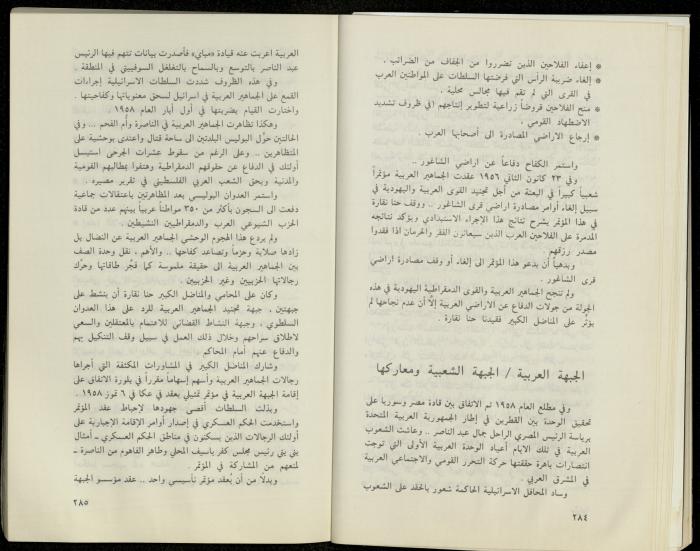 * إعفاء الفلاحين الذين تضرروا من الجفاف من الضرائب .
* إلغاء ضريبة الرأس التي فرضتها السلطات على المواطنين العرب
في القرى التي لم تقم فيها مجالس محلية .
* منح الفلاحين قروضاً زراعية لتطوير إنتاجهم في ظروف تشديد
الاضطهاد القومي .
* إرجاع الاراضي المصادرة الى أصحابها العرب .
واستمر الكفاح دفاعاً عن اراضي الشاغور ..
وفي ٢٣ كانون الثاني ١٩٥٦ عقدت الجماهير العربية مؤتمراً
شعبياً كبيراً في البعنة من أجل تجنيد القوى العربية واليهودية في
سبيل إلغاء أوامر مصادرة اراضي قرى الشاغور .. ووقف حنا نقارة
في هذا المؤتمر يشرح نتائج هذا الإجراء الاستبدادي ويؤكد نتائجه
المدمرة على الفلاحين العرب الذين سيعانون الفقر والحرمان اذا فقدوا
مصدر رزقهم
وبديهياً أن يدعو هذا المؤتمر الى إلغاء أو وقف مصادرة اراضي
قرى الشاغور .
ولم تنجح الجماهير العربية والقوى الدمقراطية اليهودية في هذه
الجولة من جولات الدفاع عن الاراضي العربية إلّا أن عدم نجاحها لم
يؤثر على المناضل الكبير فقيدنا حنا نقارة .
الجبهة العربية / الجبهة الشعبية ومعاركها
وفي مطلع العام ١٩٥٨ تم الاتفاق بين مصر وسوريا على
تحقيق الوحدة بين القطرين في إطار الجمهورية العربية المتحدة
برياسة الرئيس المصري الراحل جمال عبد الناصر .. وعاشت الشعوب
العربية في تلك الايام أعياد الوحدة العربية الأولى التي توجت
انتصارات باهرة حققتها حركة التحرر القومي والاجتماعي العربية
في المشرق العربي .
وساد المحافل الاسرائيلية الحاكمة شعور بالحقد على الشعوب
٢٨٤
العربية اعربت عنه قيادة «مباي» فأصدرت بيانات تتهم فيها الرئيس
عبد الناصر بالتوسع وبالسماح بالتغلغل السوفييتي في المنطقة .
وفي هذه الظروف شددت السلطات الاسرائيلية إجراءات
القمع على الجماهير العربية في اسرائيل لسحق معنوياتها وكفاحيتها .
واختارت القيام بضربتها في أول أيار العام ١٩٥٨ .
وهكذا تظاهرت الجماهير العربية في الناصرة وأم الفحم ... وفي
الحالتين حوّل البوليس البلدتين الى ساحة قتال واعتدى بوحشية على
المتظاهرين .. وعلى الرغم من سقوط عشرات الجرحى استبسل
أولئك في الدفاع عن حقوقهم الدمقراطية وهتفوا بمطالبهم القومية
والمدنية وبحق الشعب العربي الفلسطيني في تقرير مصيره .
واستمر العدوان البوليسي بعد المظاهرتين باعتقالات جماعية
دفعت الى السجون بأكثر من ٣٥٠ مواطناً عربياً بينهم عدد من قادة
الحزب الشيوعي العرب والدمقراطيين النشيطين .
ولم يردع هذا الهجوم الوحشي الجماهير العربية عن النضال بل
زادها صلابة وحزماً وتصاعد كفاحها .. والأهم ، نقل وحدة الصف
بين الجماهير العربية الى حقيقة ملموسة كما فجّر طاقاتها وحرّك
رجالاتها الحزبيين وغير الحزبيين .
وكان على المحامي والمناضل الكبير حنا نقارة أن ينشط على
جبهتين ، جبهة تجنيد الجماهير العربية للرد على هذا العدوان
السلطوي ، وجبهة النشاط القضائي للاهتمام بالمعتقلين والسعي
لاطلاق سراحهم وخلال ذلك العمل في سبيل وقف التنكيل بهم
والدفاع عنهم أمام المحاكم .
وشارك المناضل الكبير في المشاورات المكثفة التي أجراها
رجالات الجماهير العربية وأسهم إسهاماً مقرراً في بلورة الاتفاق على
إقامة الجبهة العربية في مؤتمر تمثيلي يعقد في عكا في ٦ تموز ١٩٥٨ .
وبذلت السلطات أقصى جهودها لإحباط عقد المؤتمر
واستخدمت الحكم العسكري في إصدار أوامر الإقامة الإجبارية على
أولئك الرجالات الذين يسكنون في مناطق الحكم العسكري ــ أمثال
يني يني رئيس مجلس كفر ياسيف المحلي وطاهر الفاهوم من الناصرة ــ
لمنعهم من المشاركة في المؤتمر .
وبدلا من أن يعقد مؤتمر تأسيسي واحد .. عقد مؤسسو الجبهة
٢٨٥